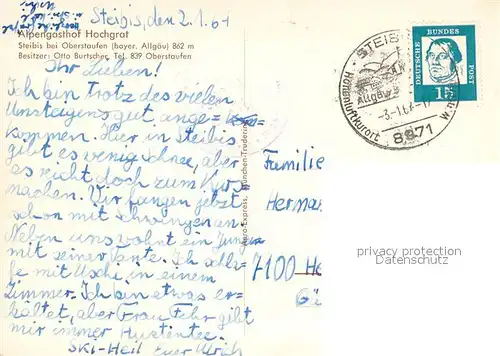 Steibis, den 2.1.64
Alpengasthof Hochgrat
Steibis bei Oberstaufen (bayer. Allgäu) 862 m
Besitzer: Otto Burtscher, Tel. 839 Oberstaufen
Ihr Lieben!
Ich bin trotz des vielen
Umsteigens gut ange-
kommen. Hier in Steibis
gibt es wenig Schnee, aber
es reicht doch zum Kurs
machen. Wir fangen jetzt
schon mit schwingen an.
Neben uns wohnt ein Junge
mit seiner Tante. Ich schla-
fe mit Uschi in einem
Zimmer. Ich bin etwas er-
kältet, aber Frau Fehr gibt
mir immer Hustentee.
SKI-Heil Euer Ulrich
Aero-Express, München-Trudering
STEIBIS
Allgäu
-3-1.64-17
Höhenluftkurort
8971
DEUTSCHE BUNDES POST
15
Familie
Herma
7100 He
privacy protection
Datenschutz